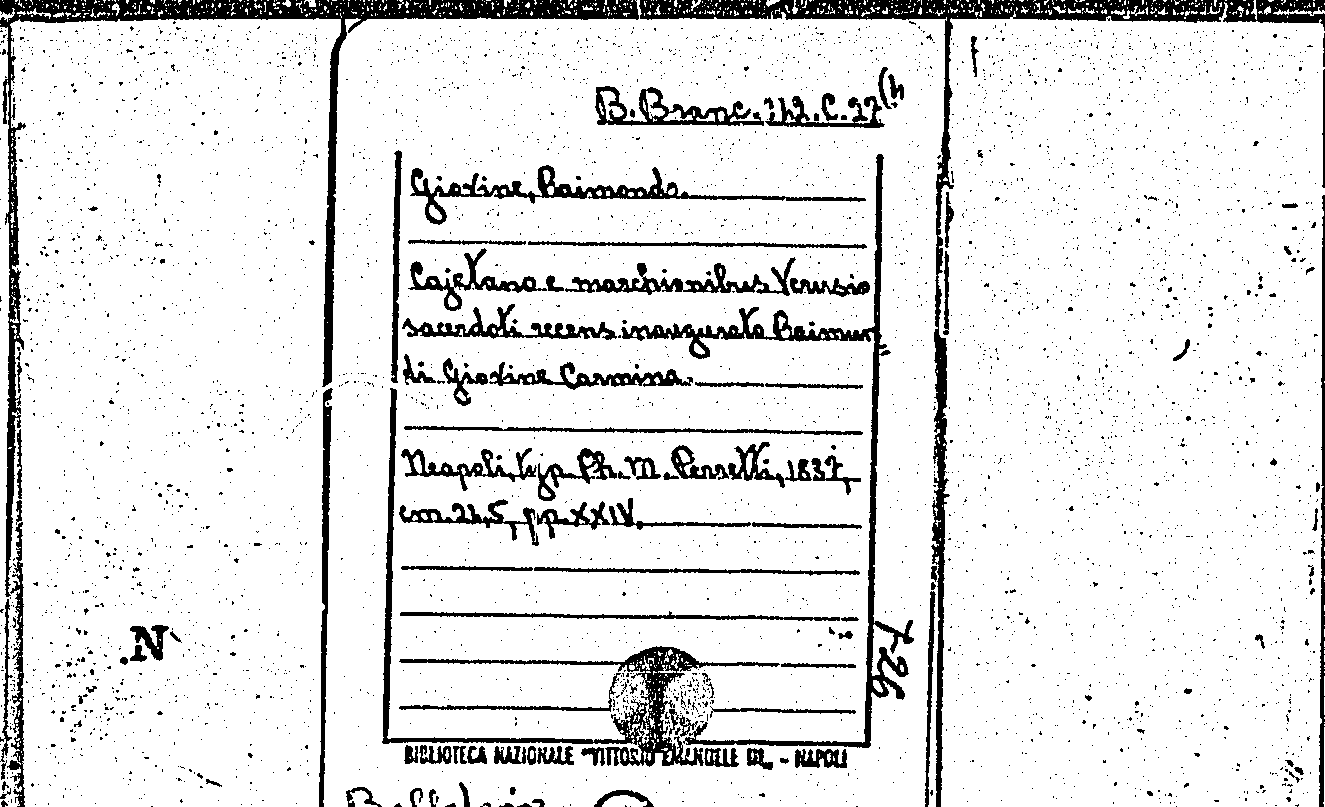 B. Branc. 112. C. 27 (4
Giovine, Raimondo.
Cajetano e marchionibus Verusio
sacerdoti recens inaugurato Raimun=
di Giovine Carmina.
Neapoli, typ. Ph. M. Perretti, 1837,
cm. 21,5, pp. XXIV.
N
F 26
BIBLIOTECA NAZIONALE "VITTORIO EMANUELE III" - NAPOLI